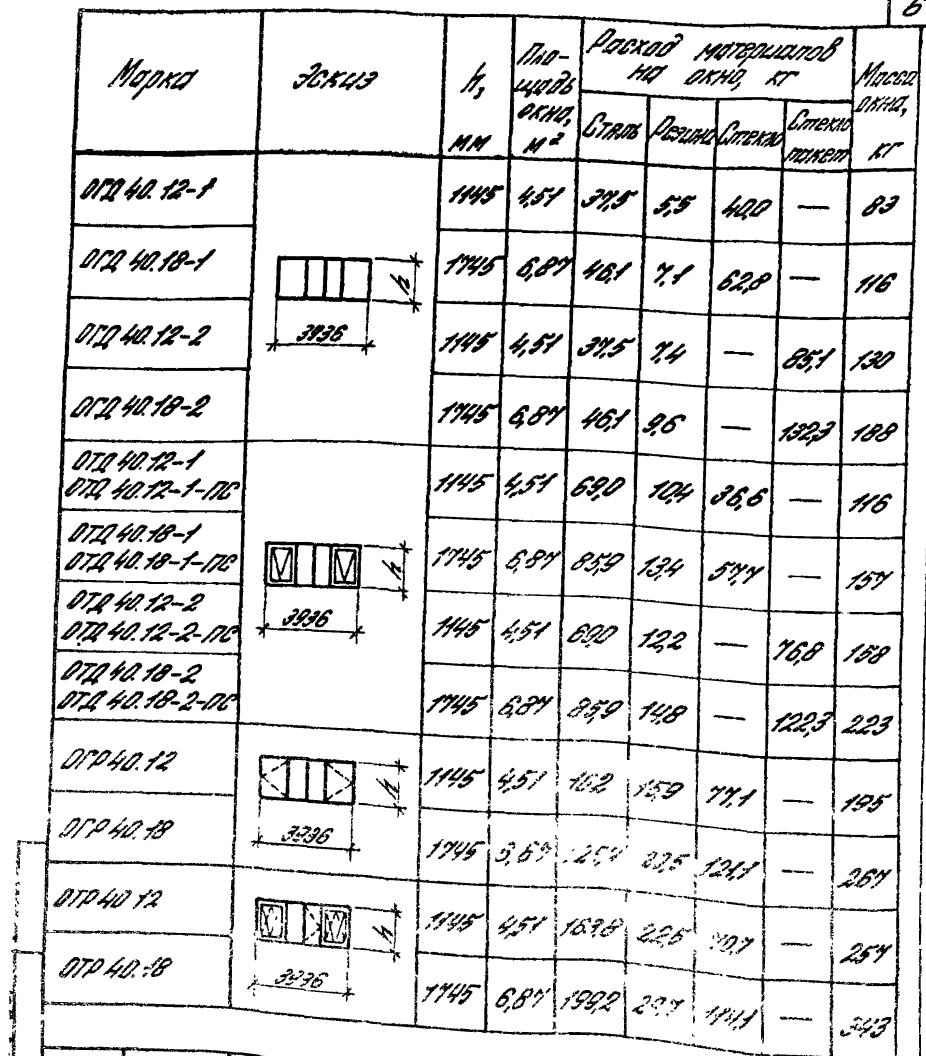 6
Марка Эскиз h, мм Пло-щадь окна, м² Расход материалов на окно, кг Масса окна, кг
Сталь Резина Стекло Стекло пакет
ОГД 40.12-1 1145 4,51 37,5 5,5 40,0 — 83
ОГД 40.18-1 1745 6,87 46,1 7,1 62,8 — 116
h
3936
ОГД 40.12-2 1145 4,51 37,5 7,4 — 85,1 130
ОГД 40.18-2 1745 6,87 46,1 9,6 — 132,3 188
ОТД 40.12-1
ОТД 40.12-1-ПС 1145 4,51 69,0 10,4 36,6 — 116
ОТД 40.18-1
ОТД 40.18-1-ПС 1745 6,87 85,9 13,4 57,7 — 157
h
3936
ОТД 40.12-2
ОТД 40.12-2-ПС 1145 4,51 69,0 12,2 — 76,8 158
ОТД 40.18-2
ОТД 40.18-2-ПС 1745 6,87 85,9 14,8 — 122,3 223
ОГР 40.12 1145 4,51 15,9 77,1 — 195
h
3936
ОГР 40.18 1745 121,1 — 267
ОТР 40.12 1145 4,51 163,8 22,6 — 257
h
3936
ОТР 40.18 1745 6,87 199,2 — 343